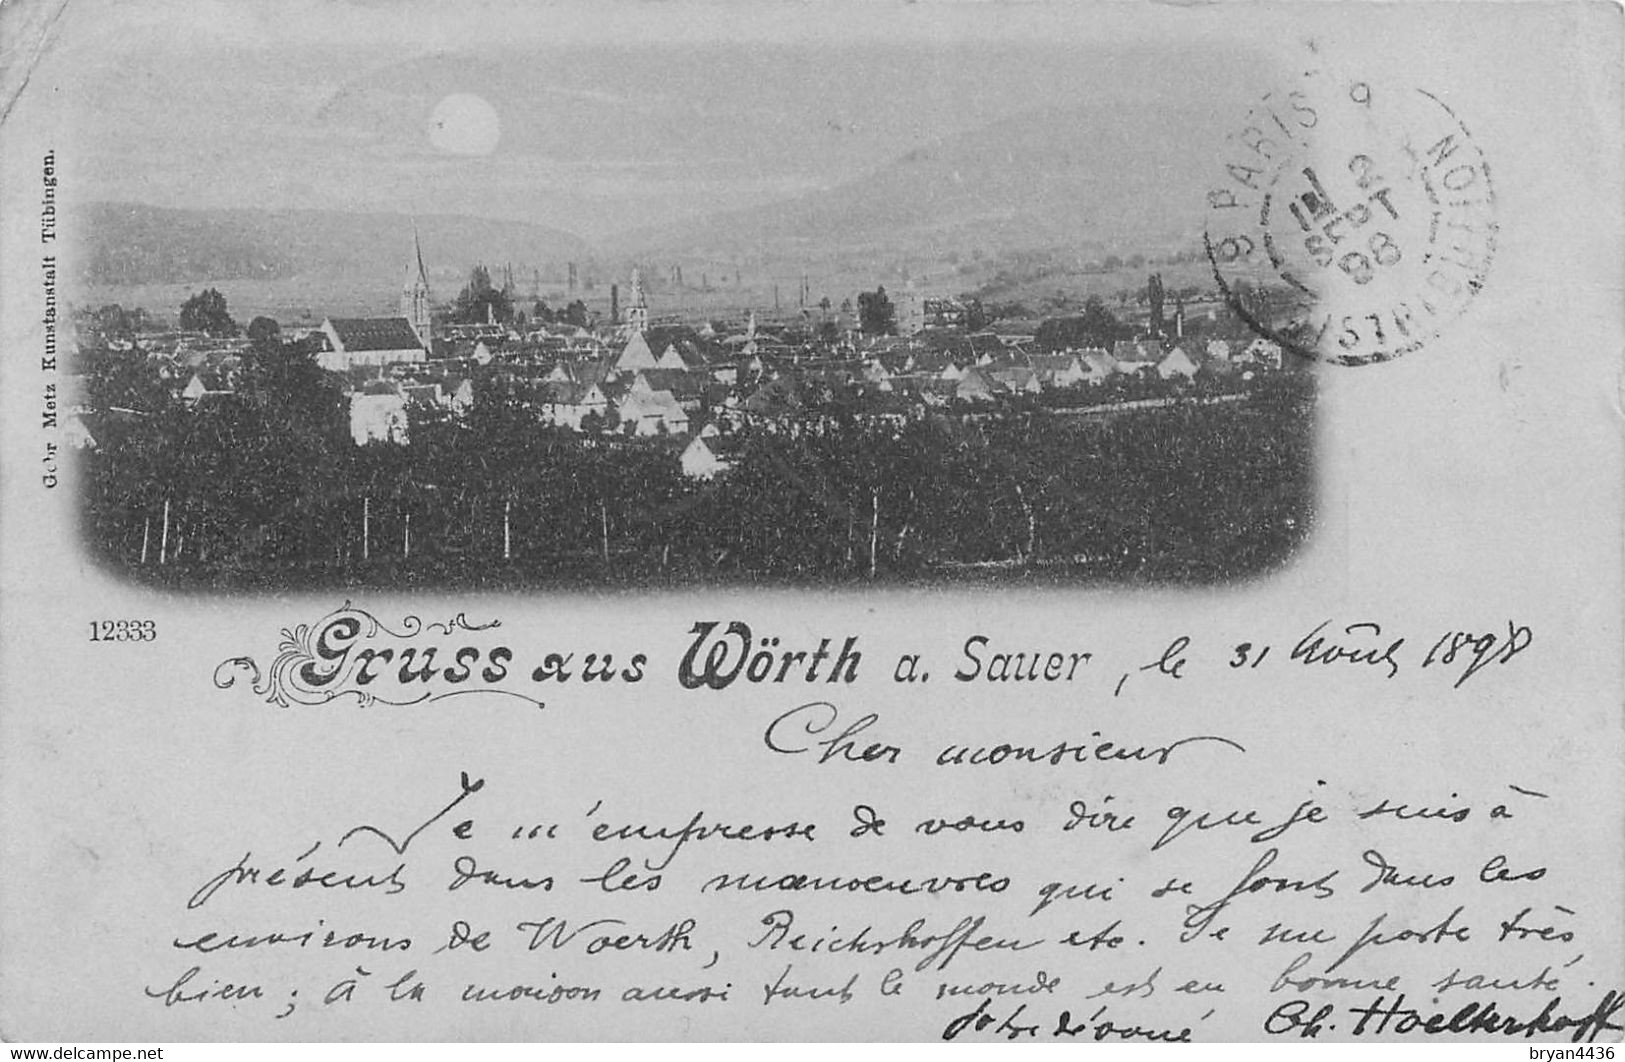 Gebr Metz Kunstanstalt Tübingen.
9 PARIS 9
DISTRIBUTION
2
SEPT
98
12333
Gruss aus Wörth a. Sauer, le 31 Août 1898
Cher monsieur
Je m'empresse de vous dire que je suis à
présent dans les manoeuvres qui se font dans les
environs de Woerth, Reichshoffen etc. Je me porte très
bien ; à la maison aussi tout le monde est en bonne santé.
Votre dévoué Ch.
bryan4436